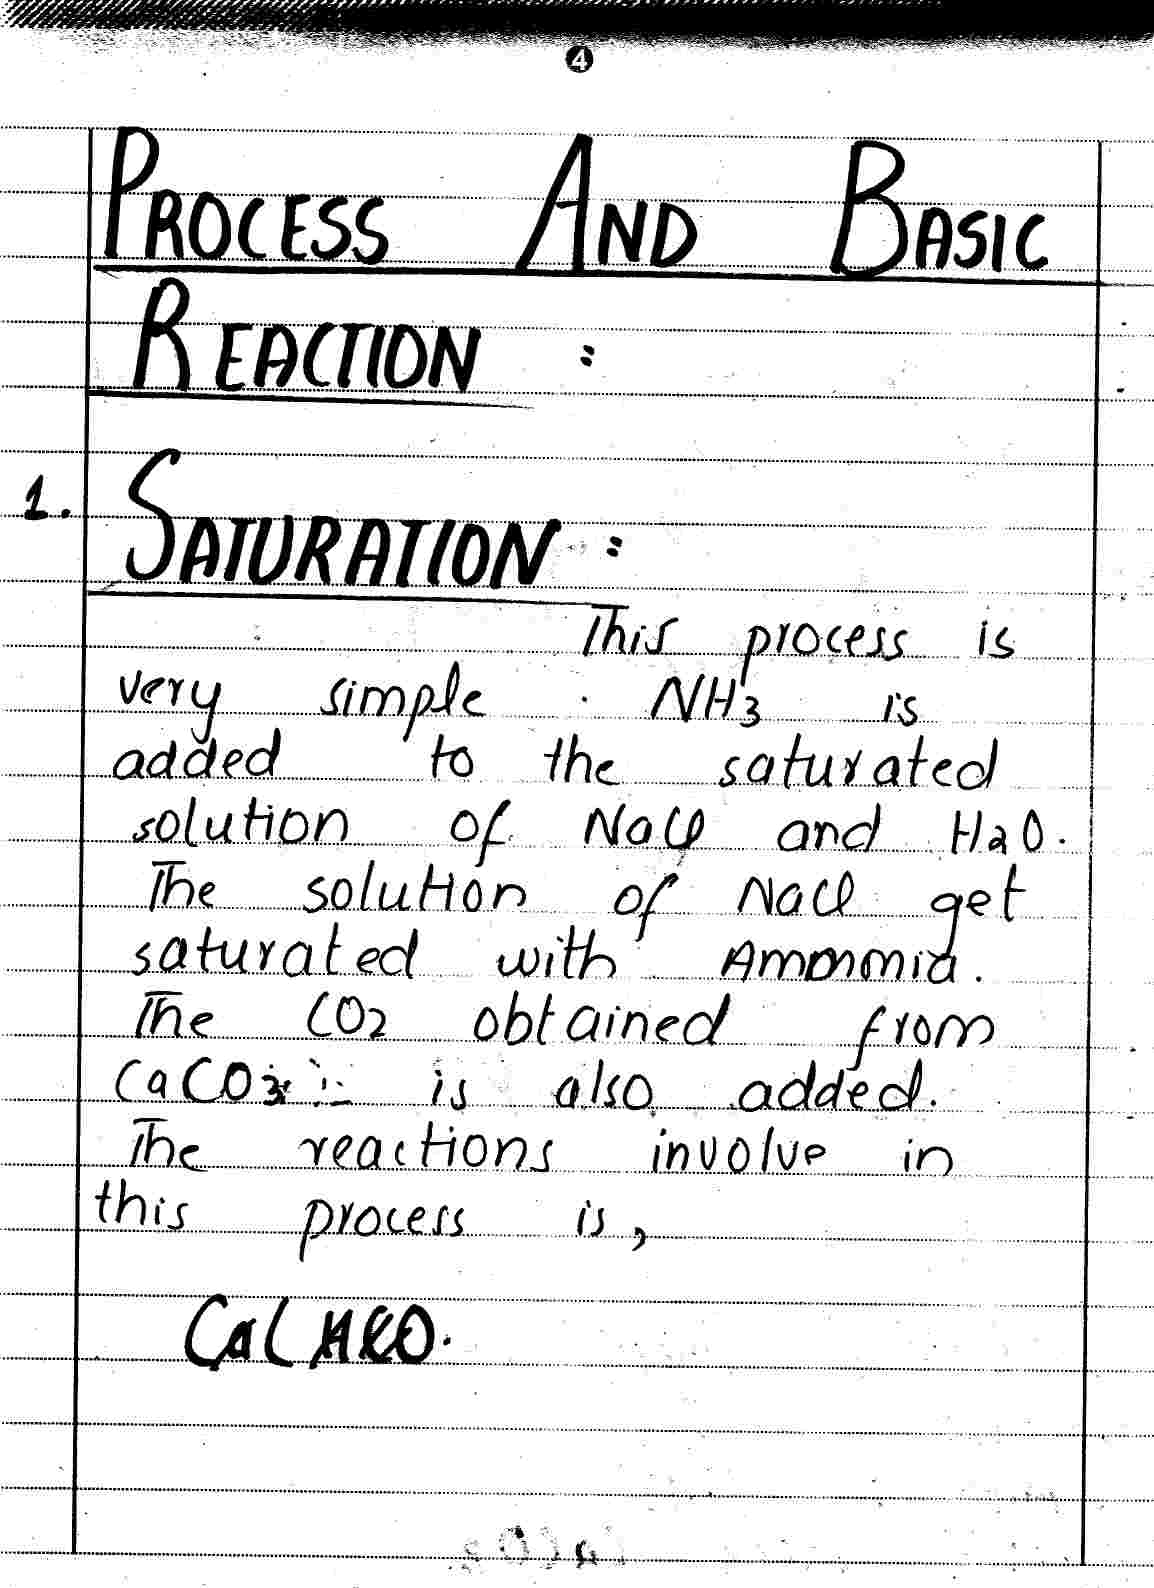 4
PROCESS AND BASIC
REACTION :
1. SATURATION :
This process is
very simple . NH3 is
added to the saturated
solution of NaCl and H2O.
The solution of NaCl get
saturated with Ammomia.
The CO2 obtained from
CaCO3 is also added.
The reactions involve in
this process is,